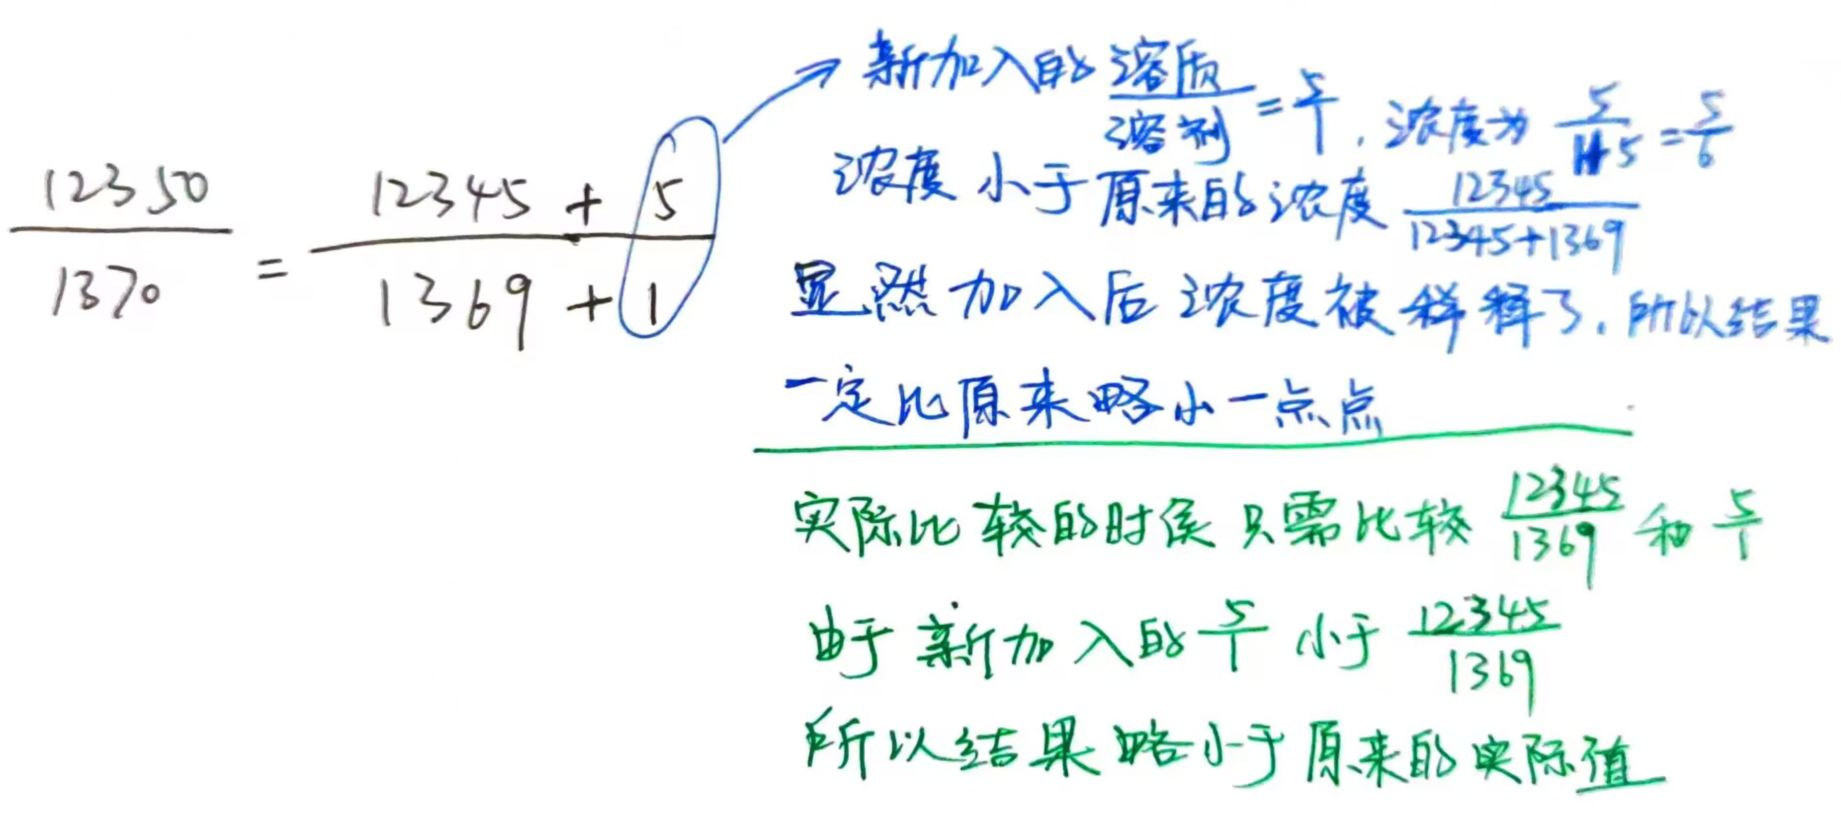 12350/1370 = (12345 + 5)/(1369 + 1)
新加入的 溶质/溶剂 = 5/1, 浓度为 5/(1+5) = 5/6
浓度小于原来的浓度 12345/(12345+1369)
显然加入后浓度被稀释了, 所以结果
一定比原来略小一点点
实际比较的时侯只需比较 12345/1369 和 5/1
由于新加入的 5/1 小于 12345/1369
所以结果略小于原来的实际值